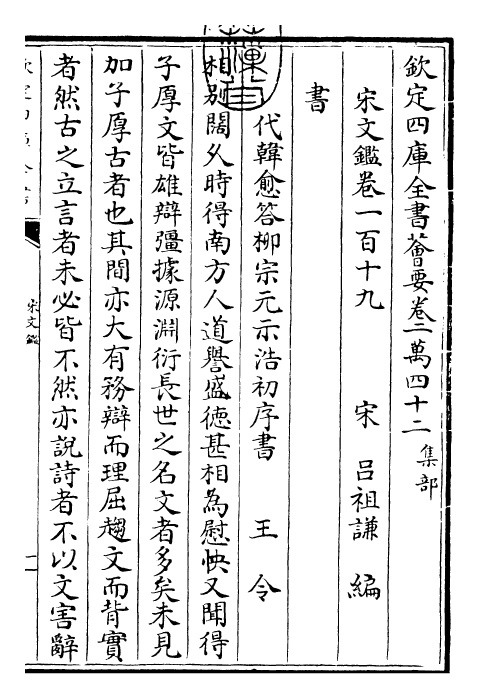 欽定四庫全書薈要卷二萬四十二 集部
宋文鑑卷一百十九 宋 呂祖謙 編
書
代韓愈答柳宗元示浩初序書 王令
相别闊乆時得南方人道譽盛徳甚相為慰怏又聞得
子厚文皆雄辯彊據源淵衍長世之名文者多矣未見
加子厚古者也其間亦大有務辯而理屈趨文而背實
者然古之立言者未必皆不然亦説詩者不以文害辭
宋文鑑
一